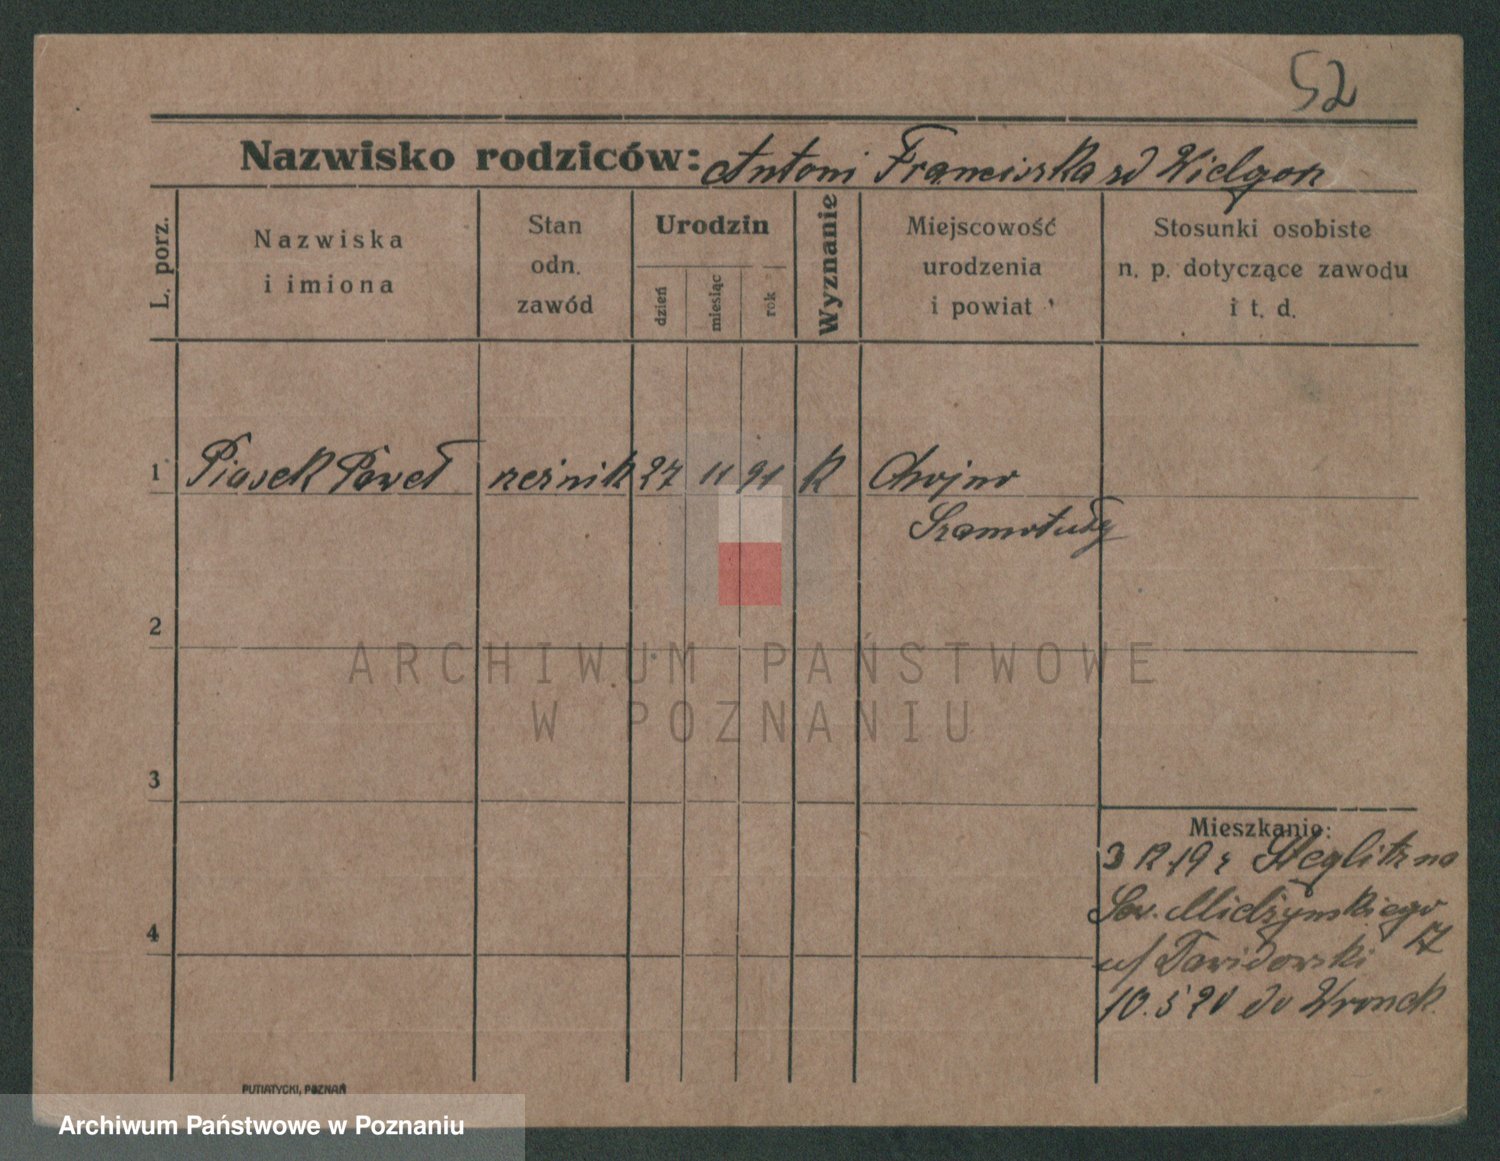 52
Nazwisko rodziców: Antoni Franciszka zd Wielgosz
L. porz.
Nazwiska
i imiona
Stan
odn.
zawód
Urodzin
dzień
miesiąc
rok
Wyznanie
Miejscowość
urodzenia
i powiat
Stosunki osobiste
n. p. dotyczące zawodu
i t. d.
1 Piasek Paweł rzeźnik 27 11 91 K Chojno
Szamotuły
2
ARCHIWUM PAŃSTWOWE
W POZNANIU
3
4
Mieszkanie:
3 12 19 z Steglitz na
Św. Mielżyńskiego
17
u/ Dawidowski
10.5 20 do Wronek
PUTIATYCKI, POZNAŃ
Archiwum Państwowe w Poznaniu